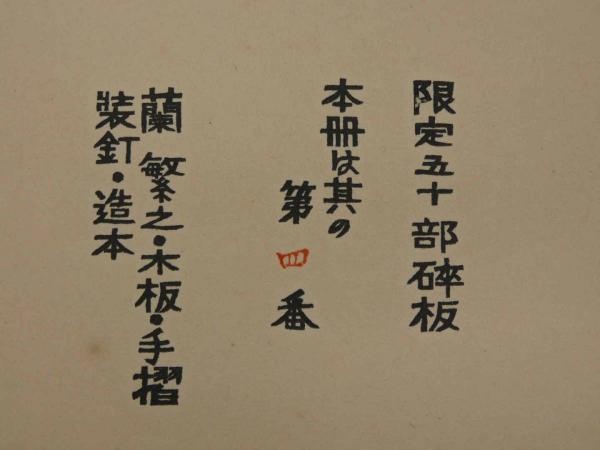 限定五十部碎板
本冊は其の
第四番
蘭繁之・木板・手摺
裝釘・造本